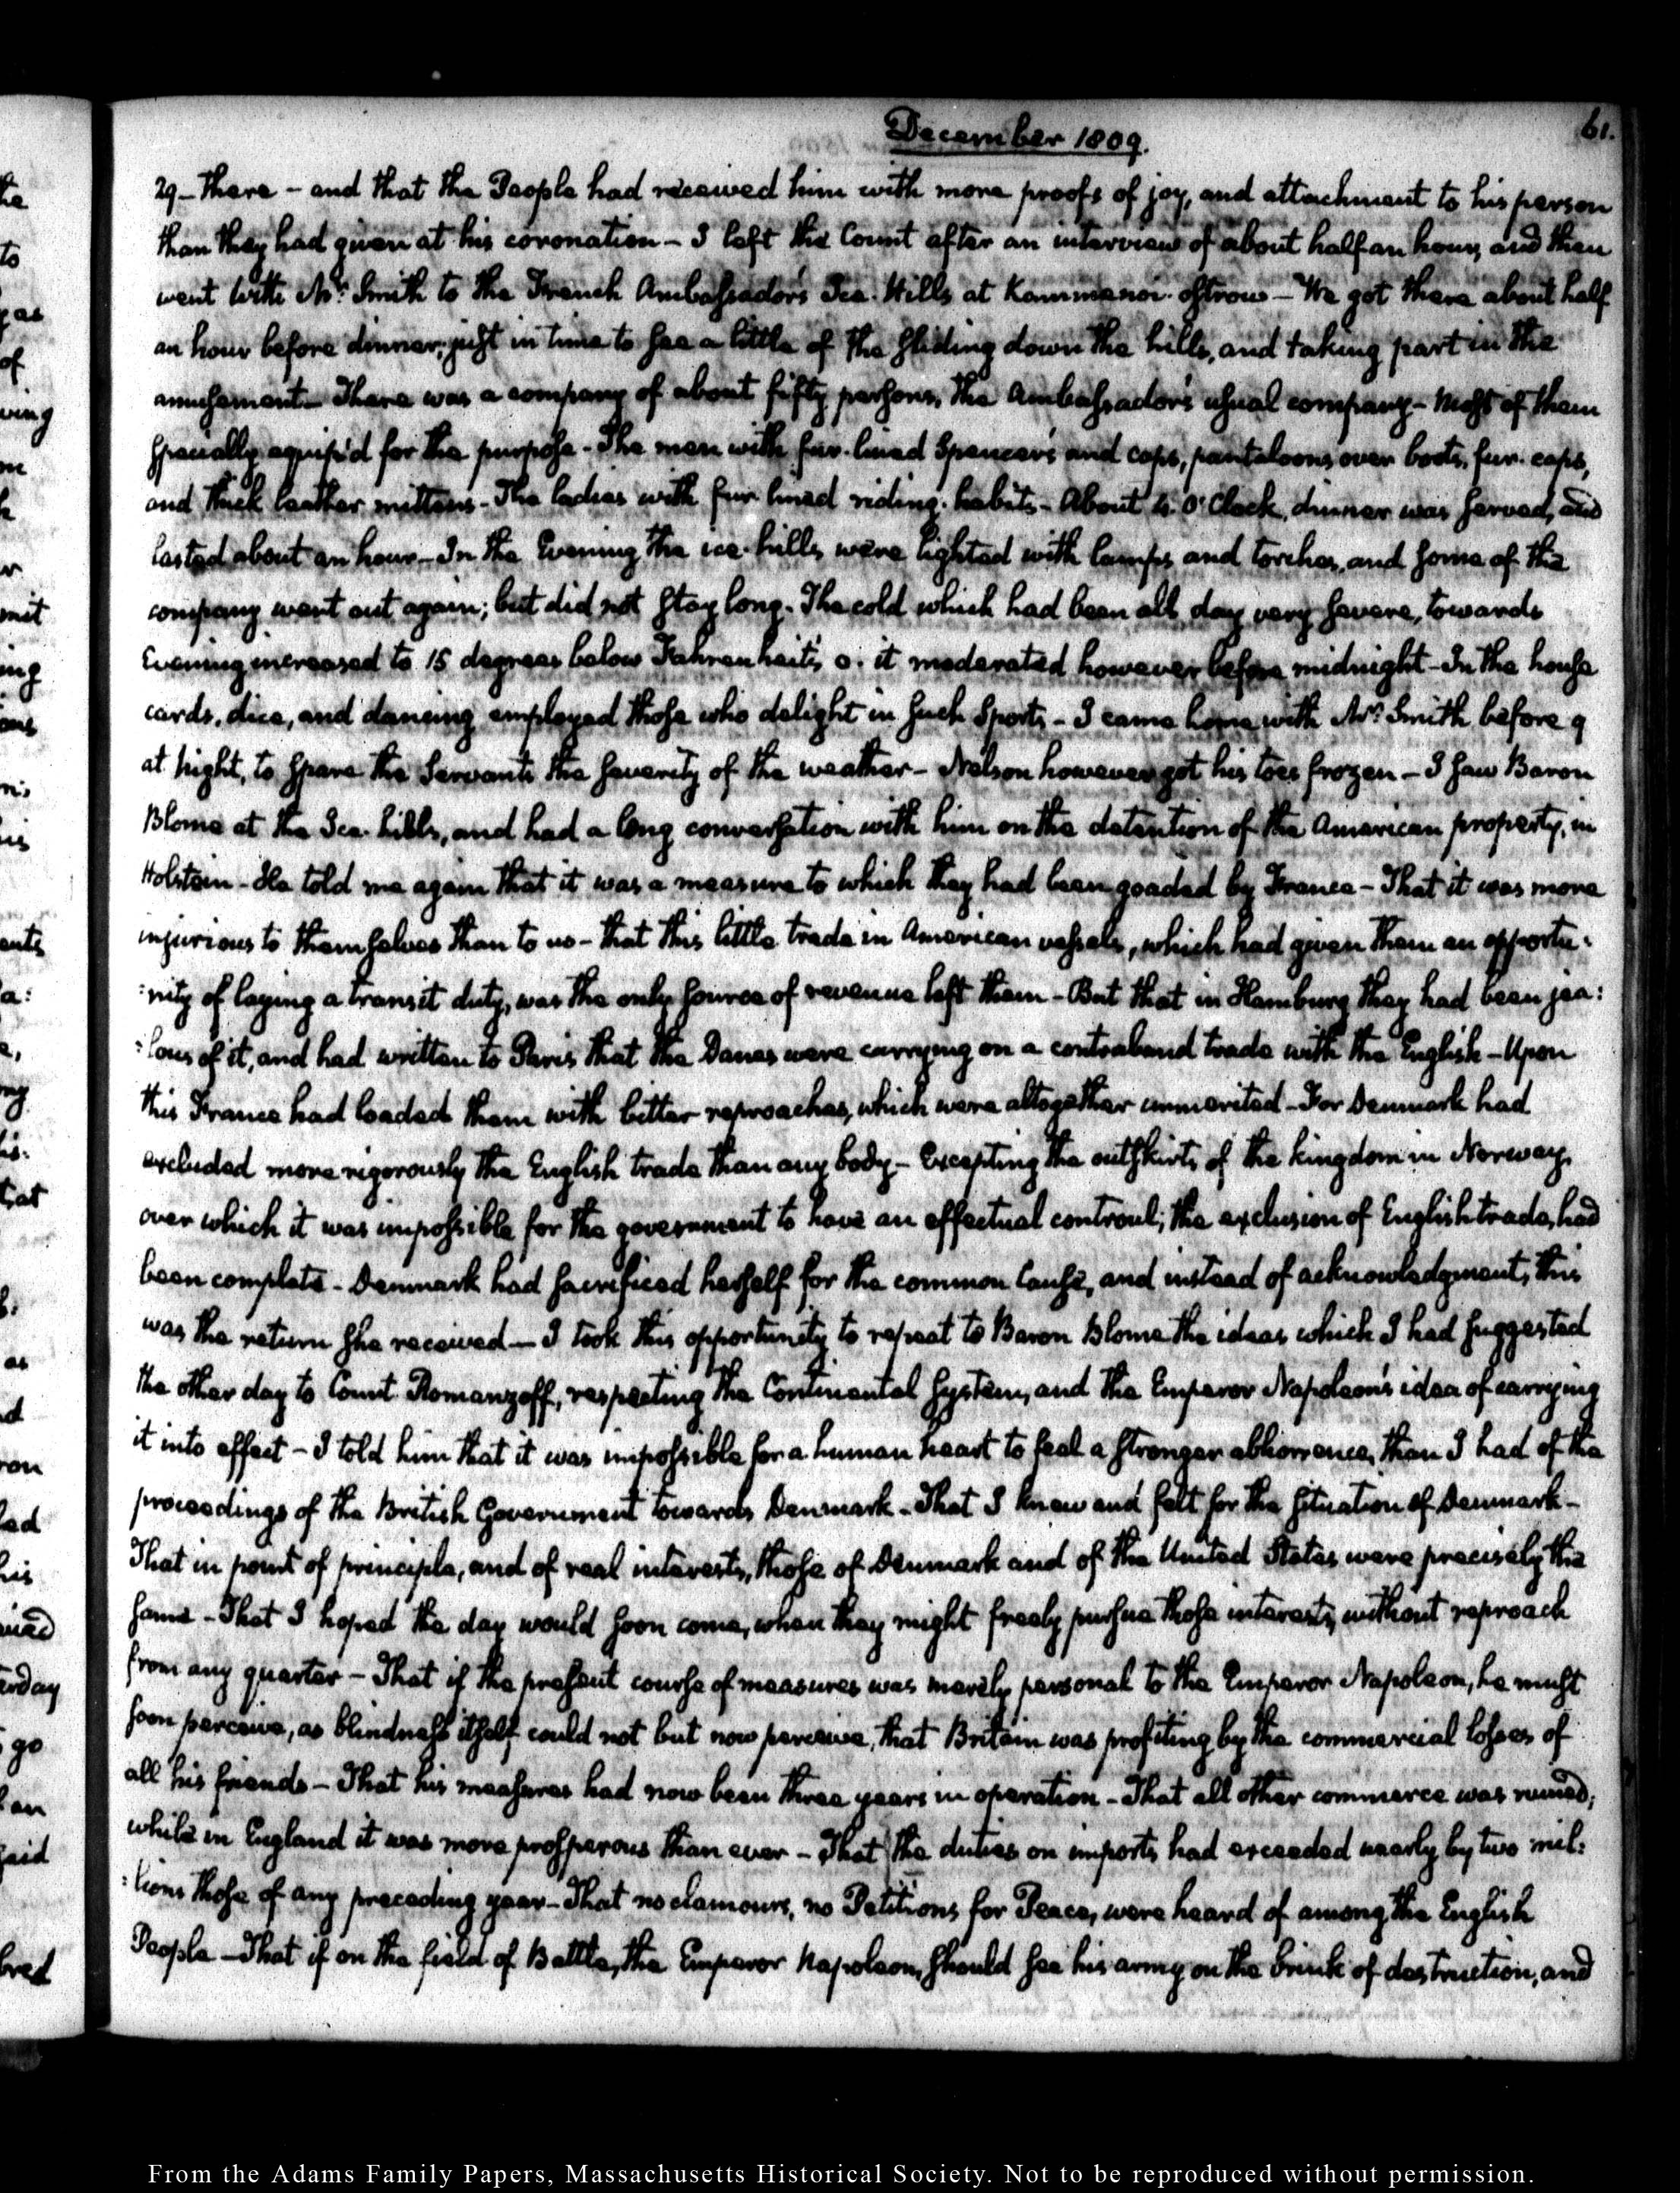 December 1809.
61.
29 - There - and that the People had received him with more proofs of joy, and attachment to his person
than they had given at his coronation - I left the Count after an interview of about half an hour, and then
went with Mr. Smith to the French Ambassador's Ice-Hills at Kammenoi-ostrow - We got there about half
an hour before dinner; just in time to see a little of the sliding down the hills, and taking part in the
amusement - There was a company of about fifty persons, the Ambassador's usual company - Most of them
specially equipp'd for the purpose - The men with fur-lined Spencers and caps, pantaloons over boots, fur-caps,
and thick leather mittens - The ladies with fur lined riding-habits - About 4. O'Clock, dinner was served, and
lasted about an hour - In the Evening the ice-hills were lighted with lamps and torches, and some of the
company went out again; but did not stay long. The cold which had been all day very severe, towards
Evening increased to 15 degrees below Fahrenheit's 0. it moderated however before midnight - In the house
cards, dice, and dancing employed those who delight in such Sports - I came home with Mr. Smith before 9
at night, to spare the Servants the severity of the weather - Nelson however got his toes frozen - I saw Baron
Blome at the Ice-hills, and had a long conversation with him on the detention of the American property, in
Holstein - He told me again that it was a measure to which they had been goaded by France - That it was more
injurious to themselves than to us - that this little trade in American vessels, which had given them an opportu:
:nity of laying a transit duty, was the only source of revenue left them - But that in Hamburg they had been jea:
:lous of it, and had written to Paris that the Danes were carrying on a contraband trade with the English - Upon
this France had loaded them with bitter reproaches, which were altogether unmerited - For Denmark had
excluded more rigorously the English trade than any body - Excepting the outskirts of the kingdom in Norway,
over which it was impossible for the government to have an effectual controul; the exclusion of English trade, had
been complete - Denmark had sacrificed herself for the common Cause, and instead of acknowledgment, this
was the return she received - I took this opportunity to repeat to Baron Blome the ideas which I had suggested
the other day to Count Romanzoff, respecting the Continental System, and the Emperor Napoleon's idea of carrying
it into effect - I told him that it was impossible for a human heart to feel a stronger abhorrence, than I had of the
proceedings of the British Government towards Denmark - That I knew and felt for the situation of Denmark -
That in point of principle, and of real interests, those of Denmark and of the United States were precisely the
same - That I hoped the day would soon come, when they might freely pursue those interests, without reproach
from any quarter - That if the present course of measures was merely personal to the Emperor Napoleon, he must
soon perceive, as blindness itself could not but now perceive, that Britain was profiting by the commercial losses of
all his friends - That his measures had now been three years in operation - That all other commerce was ruined;
while in England it was more prosperous than ever - That the duties on imports had exceeded nearly by two mil:
:lions those of any preceding year - That no clamours, no Petitions for Peace, were heard of among the English
People - That if on the field of Battle, the Emperor Napoleon, should see his army on the brink of destruction, and
From the Adams Family Papers, Massachusetts Historical Society. Not to be reproduced without permission.